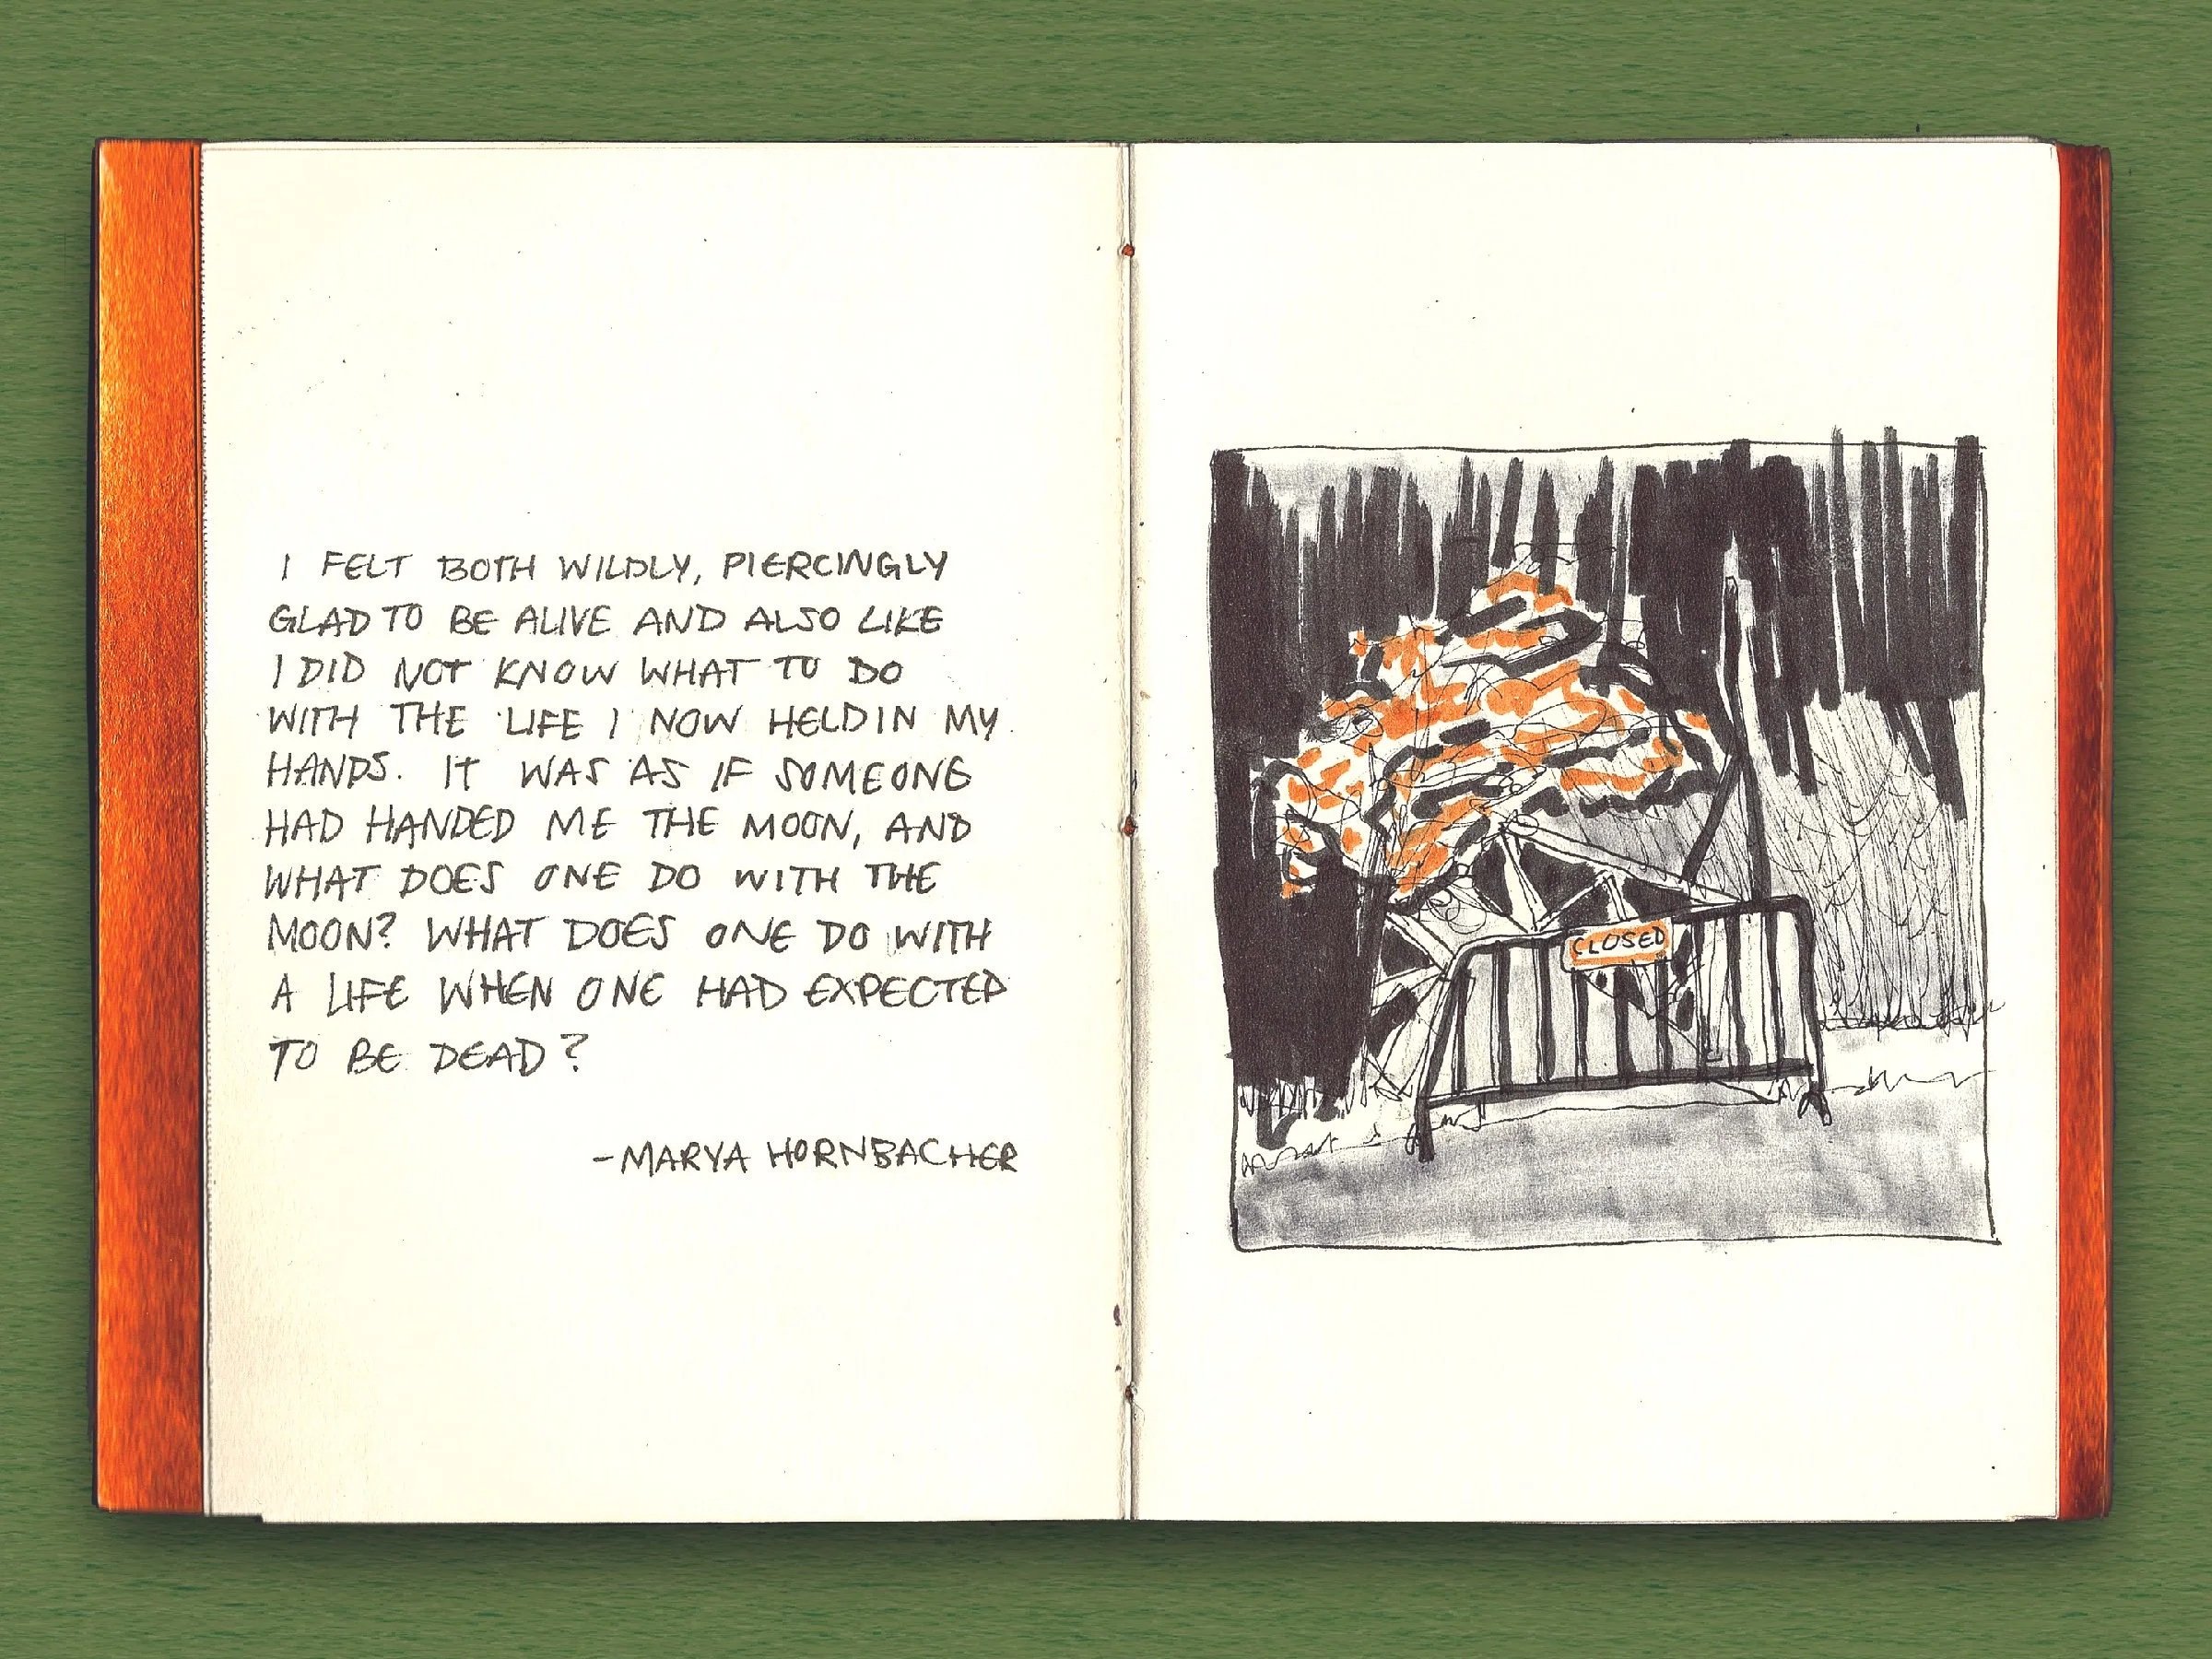 I FELT BOTH WILDLY, PIERCINGLY
GLAD TO BE ALIVE AND ALSO LIKE
I DID NOT KNOW WHAT TO DO
WITH THE LIFE I NOW HELD IN MY
HANDS. IT WAS AS IF SOMEONE
HAD HANDED ME THE MOON, AND
WHAT DOES ONE DO WITH THE
MOON? WHAT DOES ONE DO WITH
A LIFE WHEN ONE HAD EXPECTED
TO BE DEAD?
-MARYA HORNBACHER
CLOSED